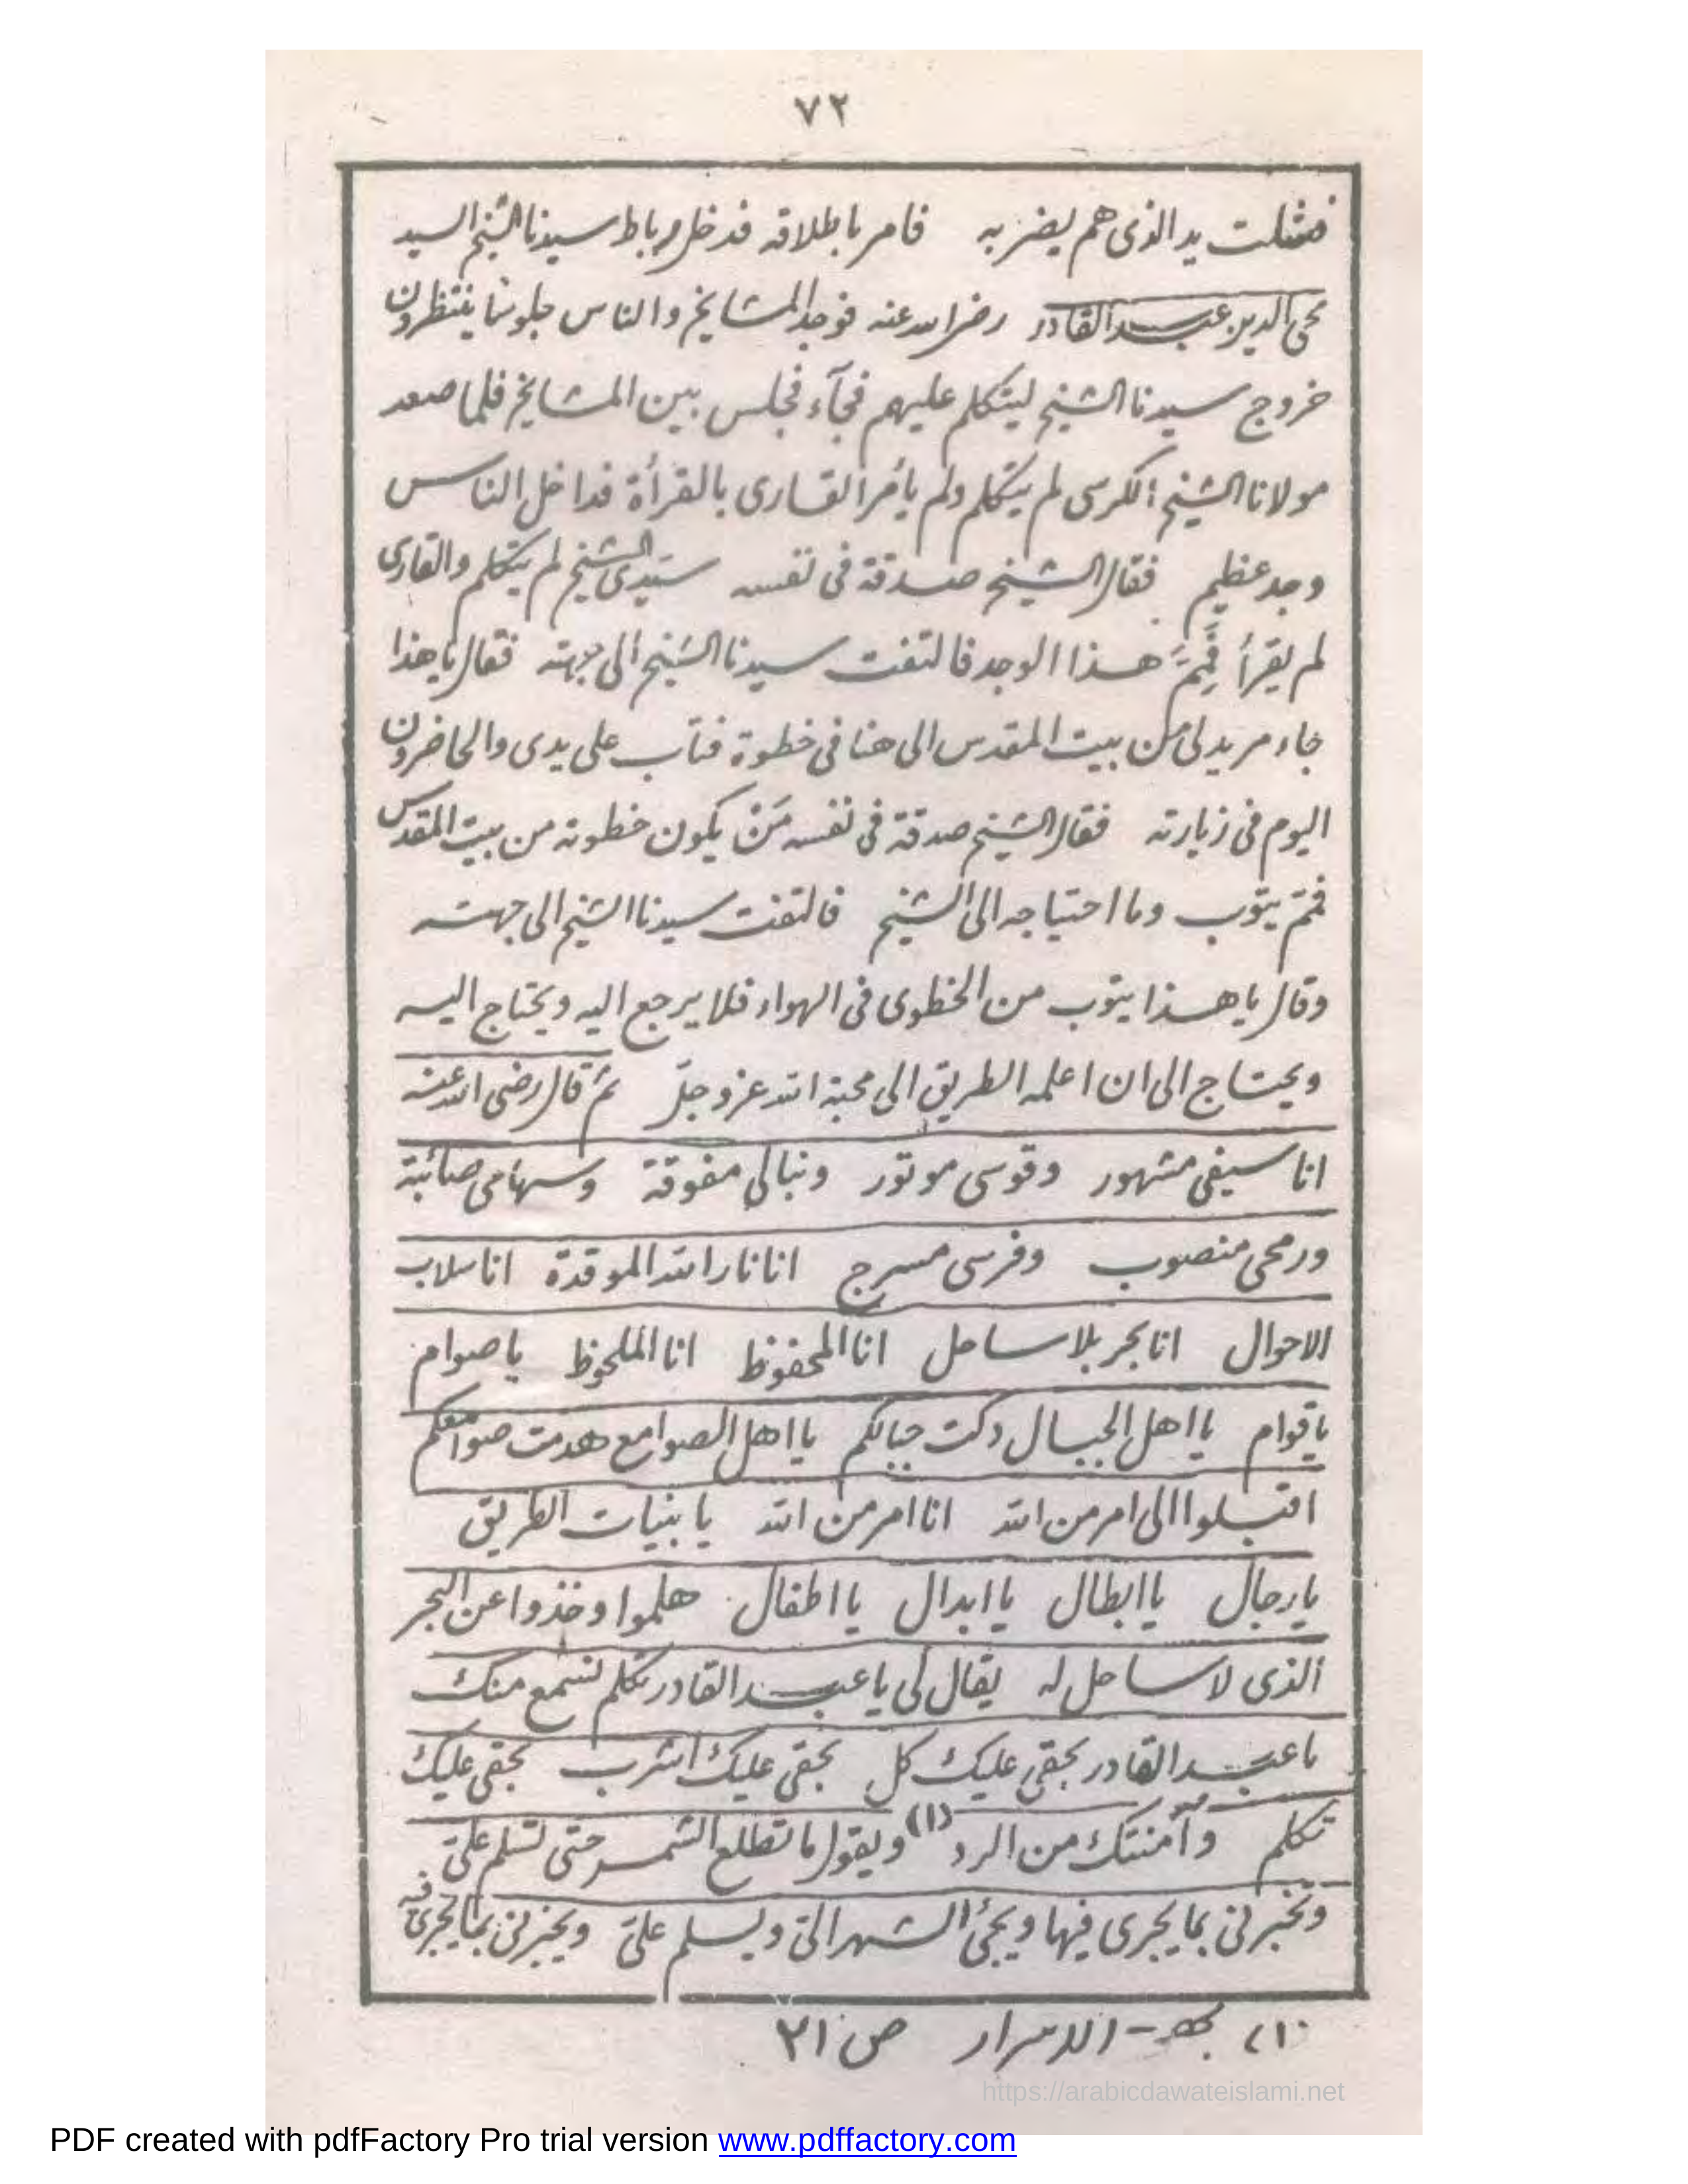 ٧٢
فشلت يد الذى هم يضربه فامر باطلاقه فدخل رباط سيدنا الشيخ السيد
محى الدين عبد القادر رضى الله عنه فوجد المشايخ والناس جلوسا ينتظرون
خروج سيدنا الشيخ ليتكلم عليهم فجآء فجلس بين المشايخ فلما صعد
مولانا الشيخ الكرسى لم يتكلم ولم يأمر القارى بالقرأة فداخل الناس
وجد عظيم فقال الشيخ صدقة فى نفسه سيدى الشيخ لم يتكلم والقارى
لم يقرأ فمم هذا الوجد فالتفت سيدنا الشيخ الى جهته فقال يا هذا
جاء مريد لى من بيت المقدس الى هنا فى خطوة فتاب على يدى والحاضرون
اليوم فى زيارته فقال الشيخ صدقة فى نفسه مَنْ يكون خطوته من بيت المقدس
فمم يتوب وما احتياجه الى الشيخ فالتفت سيدنا الشيخ الى جهته
وقال يا هذا يتوب من الخطوى فى الهواء فلا يرجع اليه ويحتاج اليه
ويحتاج الى ان اعلمه الطريق الى محبة الله عز وجلّ ثم قال رضى الله عنه
انا سيفى مشهور وقوسى موتور ونبالى مفوقة وسهامى صائبة
ورمحى منصوب وفرسى مسرج انا نار الله الموقدة انا سلاب
الاحوال انا بحر بلا ساحل انا المحفوظ انا الملحوظ يا صوام
يا قوام يا اهل الجبال دكت جبالكم يا اهل الصوامع هدمت صوامعكم
اقبلوا الى امر من الله انا امر من الله يا بنيات الطريق
يا رجال يا ابطال يا ابدال يا اطفال هلموا وخذوا عن البحر
الذى لا ساحل له يقال لى يا عبد القادر تكلم نسمع منك
يا عبد القادر بحقى عليك كل بحقى عليك اشرب بحقى عليك
تكلم وآمنتك من الرد (١) ويقول ما تطلع الشمس حتى تسلم علىّ
وتخبرنى بما يجرى فيها ويجئ الشهر الىّ ويسلم علىّ ويخبرنى بما يجرى فيه
(١) بهجة الاسرار ص ٢١
https://arabicdawateislami.net
PDF created with pdfFactory Pro trial version www.pdffactory.com